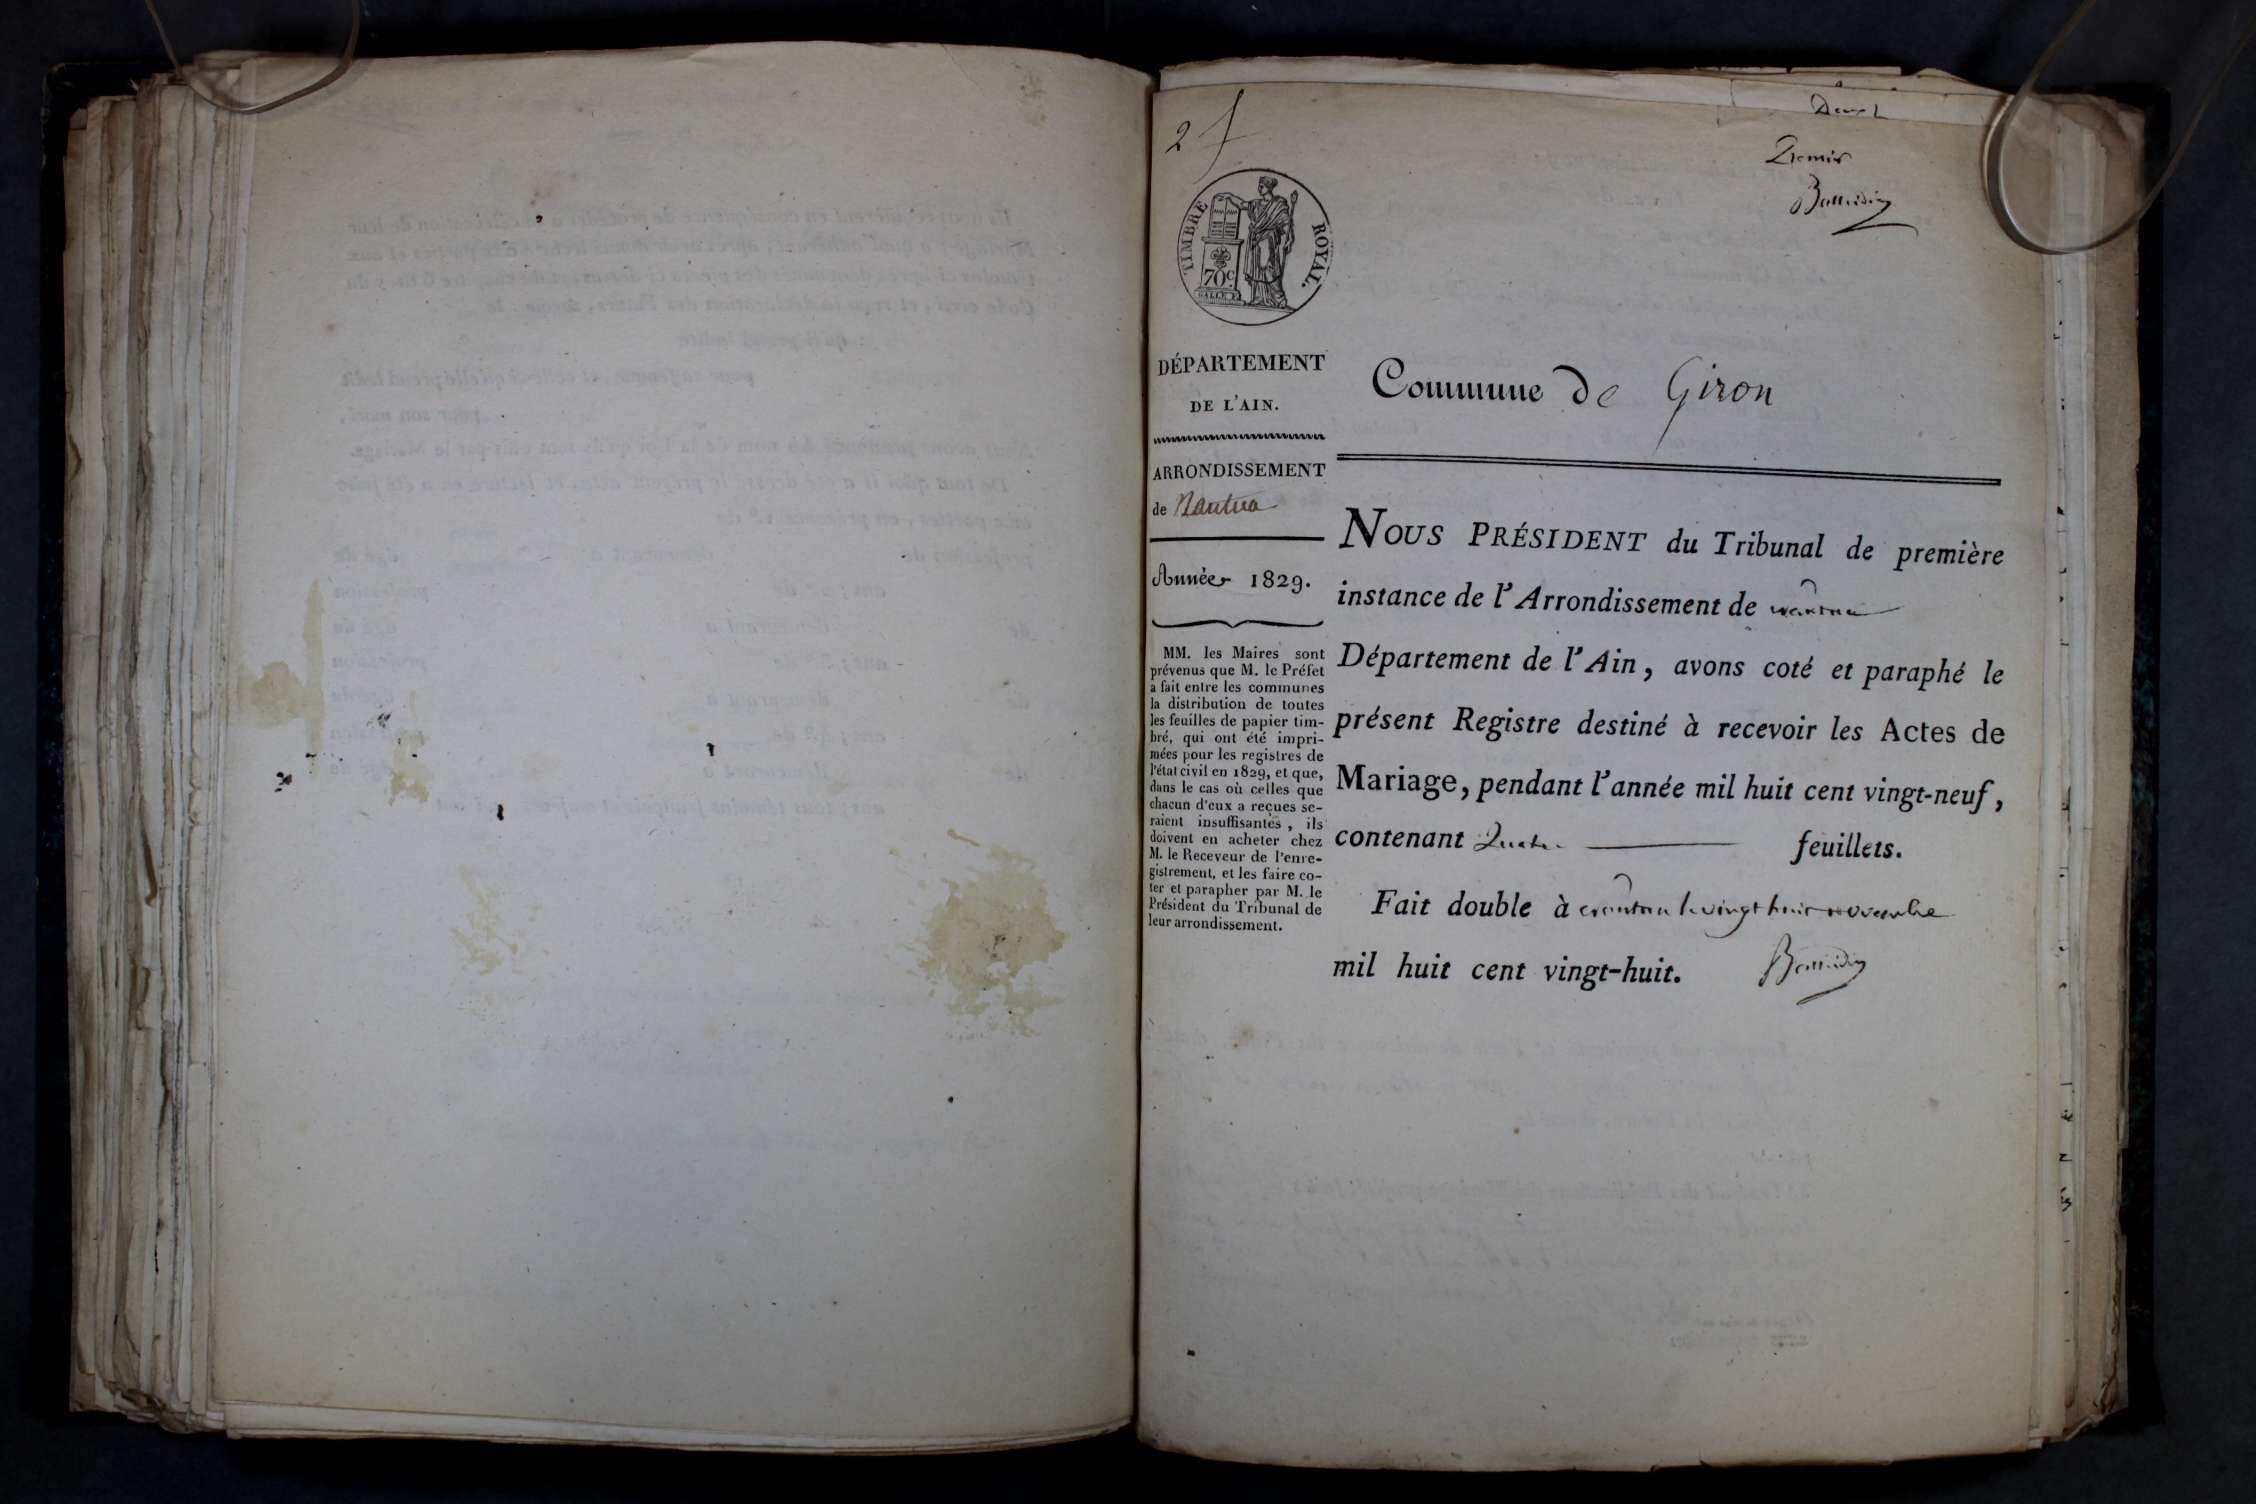 2 f
Premier
TIMBRE ROYAL.
70c.
DÉPARTEMENT
DE L'AIN.
ARRONDISSEMENT
de Nantua
Année 1829.
MM. les Maires sont
prévenus que M. le Préfet
a fait entre les communes
la distribution de toutes
les feuilles de papier tim-
bré, qui ont été impri-
mées pour les registres de
l'état civil en 1829, et que,
dans le cas où celles que
chacun d'eux a reçues se-
raient insuffisantes, ils
doivent en acheter chez
M. le Receveur de l'enre-
gistrement, et les faire co-
ter et parapher par M. le
Président du Tribunal de
leur arrondissement.
Commune de Giron
NOUS PRÉSIDENT du Tribunal de première
instance de l'Arrondissement de nantua
Département de l'Ain, avons coté et paraphé le
présent Registre destiné à recevoir les Actes de
Mariage, pendant l'année mil huit cent vingt-neuf,
contenant Quatre feuillets.
Fait double à nantua le vingt huit novembre
mil huit cent vingt-huit.